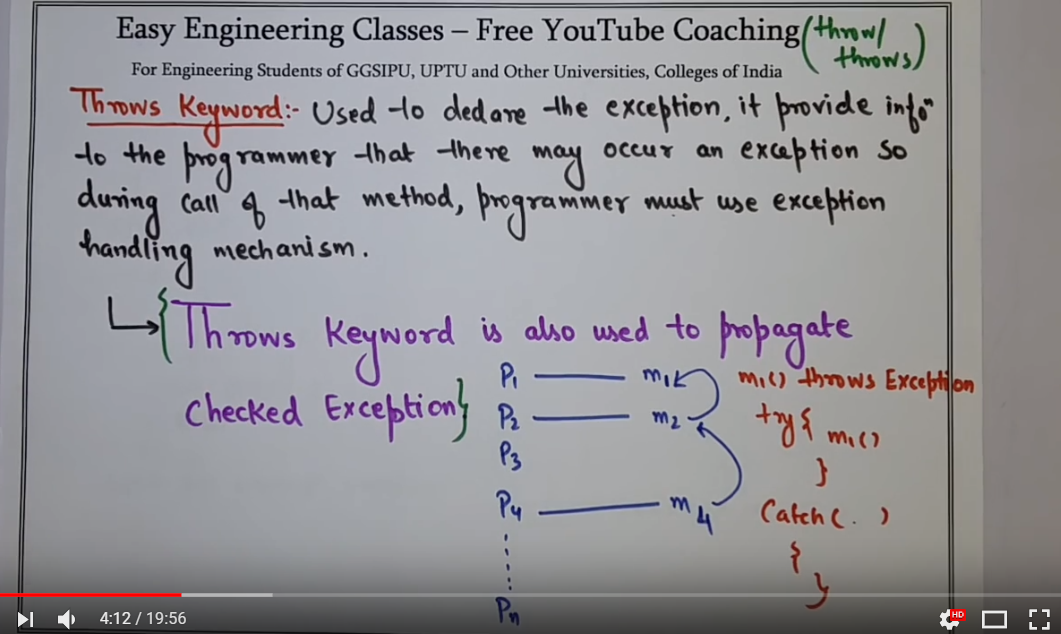 Easy Engineering Classes – Free YouTube Coaching (throw/
throws)
For Engineering Students of GGSIPU, UPTU and Other Universities, Colleges of India
Throws Keyword:- Used to declare the exception, it provide infoⁿ
to the programmer that there may occur an exception so
during call of that method, programmer must use exception
handling mechanism.
{Throws Keyword is also used to propagate
Checked Exception}
P1 m1
P2 m2
P3
P4 m4
Pn
m1() throws Exception
try{ m1()
}
Catch(. )
{
}
4:12 / 19:56
HD